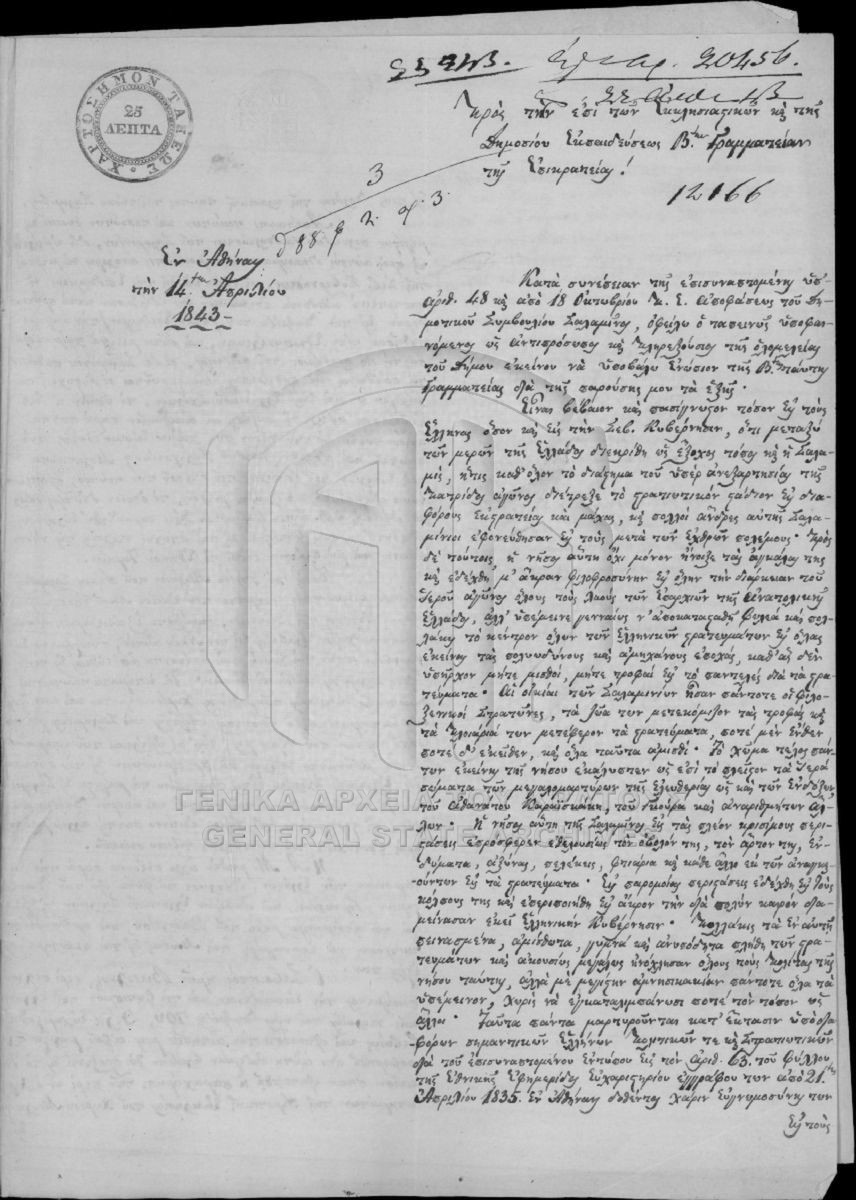 ΧΑΡΤΟΣΗΜΟΝ ΤΑΞΕΩΣ
25
ΛΕΠΤΑ
20456.
Πρὸς τὴν ἐπὶ τῶν Ἐκκλησιαστικῶν κ τῆς
Δημοσίου Ἐκπαιδεύσεως Β.την Γραμματείαν
τῆς Ἐπικρατείας!
12166
3
Ἐν Ἀθήναις
τὴν 14.την Ἀπριλίου
1843-
Κατὰ συνέπειαν τῆς ἐπισυναπτομένης ὑπ'
ἀριθ. 48 κ ἀπὸ 18 Ὀκτωβρίου π. ἔ. ἀποφάσεως τοῦ Δη-
μοτικοῦ Συμβουλίου Σαλαμῖνος, ὀφείλω ὁ ταπεινῶς ὑποφαι-
νόμενος ὡς ἀντιπρόσωπος κ πληρεξούσιος τῆς ὁλομελείας
τοῦ Δήμου ἐκείνου νὰ ὑποβάλω ἐνώπιον τῆς Β.κῆς ταύτης
Γραμματείας διὰ τῆς παρούσης μου τὰ ἑξῆς.
Εἶναι βέβαιον κ πασίγνωστον τόσον εἰς τοὺς
Ἕλληνας ὅσον κ εἰς τὴν Σεβ. Κυβέρνησιν, ὅτι μεταξὺ
τῶν μερῶν τῆς Ἑλλάδος διεκρίθη ὡς ἔξοχος τόπος κ ἡ Σαλα-
μὶς, ἥτις καθ' ὅλον τὸ διάστημα τοῦ ὑπὲρ ἀνεξαρτησίας τῆς
πατρίδος ἀγῶνος διέτρεξε τὸ στρατιωτικὸν στάδιον εἰς δια-
φόρους ἐκστρατείας καὶ μάχας, κ πολλοὶ ἄνδρες αὐτῆς Σαλα-
μίνιοι ἐφονεύθησαν εἰς τοὺς μετὰ τῶν ἐχθρῶν πολέμους. Πρὸς
δὲ τούτοις, ἡ νῆσος αὕτη ὄχι μόνον ἤνοιξε τὰς ἀγκάλας της
κ ἐδέχθη μ' ἄκραν φιλοφροσύνην εἰς ὅλην τὴν διάρκειαν τοῦ
Ἱεροῦ ἀγῶνος ὅλους τοὺς λαοὺς τῶν ἐπαρχιῶν τῆς ἀνατολικῆς
Ἑλλάδος, ἀλλ' ὑπέμεινε γενναίως ν' ἀποκατασταθῇ φωλεὰ καὶ πολ-
λάκις τὸ κέντρον ὅλων τῶν Ἑλληνικῶν στρατευμάτων εἰς ὅλας
ἐκείνας τὰς πολυωδύνους καὶ ἀμηχάνους ἐποχὰς, καθ' ἃς δὲν
ὑπῆρχον μήτε μισθοὶ, μήτε τροφαὶ εἰς τὸ παντελὲς διὰ τὰ στρα-
τεύματα. Αἱ οἰκίαι τῶν Σαλαμινίων ἦσαν πάντοτε οἱ φιλο-
ξενικοὶ Στρατῶνες, τὰ ζῶα των μετεκόμιζον τὰς τροφὰς κ
τὰ πλοιάρια των μετέφερον τὰ στρατεύματα, ποτὲ μὲν ἔνθεν
ποτὲ δ' ἐκεῖθεν, κ ὅλα ταῦτα ἀμισθί. Τὸ χῶμα τέλος πάν-
των ἐκείνης τῆς νήσου ἐκάλυπτεν ὡς ἐπὶ τὸ πλεῖστον τὰ Ἱερὰ
πτώματα τῶν μεγαλομαρτύρων τῆς Ἐλευθερίας ὡς καὶ τῶν ἐνδόξων
τοῦ ἀθανάτου Καραϊσκάκη, τοῦ Γκούρα καὶ ἀναριθμήτων ἄλ-
λων. Ἡ νῆσος αὕτη τῆς Σαλαμῖνος εἰς τὰς πλέον κρισίμους περι-
στάσεις ἐπρόσφερεν ἐθελουσίως τὸν ὀβολόν της, τὸν ἄρτον της, ἐν-
δύματα, ἀξίνας, πελέκεις, φτιάρια κ κάθε ἄλλο ἐκ τῶν ἀναγκαι-
ούντων εἰς τὰ στρατεύματα. Εἰς παρομοίας περιστάσεις ἐδέχθη εἰς τοὺς
κόλπους της κ ἐπεριποιήθη εἰς ἄκρον τὴν διὰ πολὺν καιρὸν δια-
μείνασαν ἐκεῖ Ἑλληνικὴν Κυβέρνησιν. Πολλάκις τὰ ἐν αὐτῇ
πεινασμένα, ἀμίσθωτα, γυμνὰ κ ἀνυπόδητα πλήθη τῶν στρα-
τευμάτων καὶ ἀκουσίως μεγάλως ἐνόχλησαν ὅλους τοὺς πολίτας τῆς
νήσου ταύτης, ἀλλὰ μὲ μεγίστην ἀμνησικακίαν πάντοτε ὅλα τὰ
ὑπέμεινον, χωρὶς νὰ ἐγκαταλιμπάνωσι ποτὲ τὸν τόπον ὡς
ἄλλοι. Ταῦτα πάντα μαρτυροῦνται κατ' ἔκτασιν ὑπὸ δια-
φόρων σημαντικῶν Ἑλλήνων Πολιτικῶν τε κ Στρατιωτικῶν
διὰ τοῦ ἐπισυναπτομένου ἐντύπου εἰς τὸν ἀριθ. 63. τοῦ φύλλου
τῆς Ἐθνικῆς Ἐφημερίδος Εὐχαριστηρίου ἐγγράφου των ἀπὸ 21.
Ἀπριλίου 1835. Ἐν Ἀθήναις δοθέντος χάριν εὐγνωμοσύνης των
εἰς τοὺς
ΓΕΝΙΚΑ ΑΡΧΕΙΑ ΤΟΥ ΚΡΑΤΟΥΣ
GENERAL STATE ARCHIVES